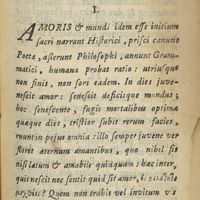 I.
AMORIS & mundi idem esse initium
sacri narrant Historici, prisci canunt
Poetæ, asserunt Philosophi, annunt Gram
matici, humana probat ratio: utriusque
non finis, non sors eadem. In dies juve-
nescit amor: senescit deficitque mundus,
hoc senescente, fugis mortalibus optima
quæque dies, tristior subit rerum facies,
nuntin pejus omnia: illo semper juvene ver
floret æternum amantibus, quo nihil fit
nisi lætum & amabile quidquam: hæc inter,
qui nescit nec sentit quid sit amor,
Quem non trahit vel invitum vis